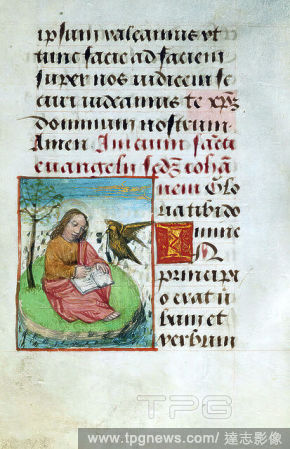 ipsum valeamus vt
tunc facie ad faciem
super nos iudicem se
curi videamus te xp̄m
dominum nostrum.
Amen Initium sancti
evangelii scd̄z Iohā
nem Glo
ria tibi do
mine
IN
principi
o erat v
bum et
verbum
TPG
www.tpgnews.com/ 達志影像